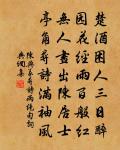 楚酒困人三日醉
園花經雨百般紅
無人畫出陳居士
亭角尋詩滿袖風
陳與義尋詩兩絕句